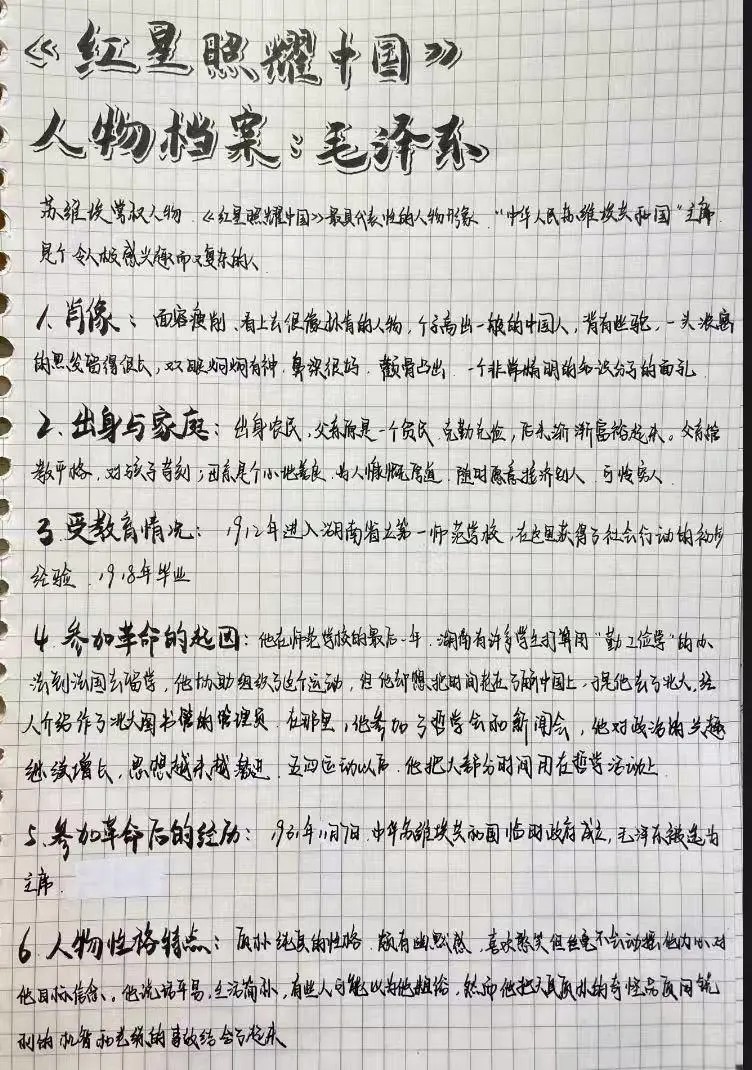 《红星照耀中国》
人物档案：毛泽东
苏维埃掌权人物.《红星照耀中国》最具代表性的人物形象."中华人民苏维埃共和国"主席
是个令人极感兴趣而又复杂的人
1、肖像：面容瘦削、看上去很像林肯的人物，个子高出一般的中国人，背有些驼，一头浓密
的黑发留得很长，双眼炯炯有神.鼻梁很高.颧骨凸出.一个非常精明的知识分子的面孔.
2、出身与家庭：出身农民，父亲原是一个贫民.克勤克俭，后来渐渐富裕起来。父亲管
教严格、对孩子苛刻；母亲是个心地善良.为人慷慨厚道.随时愿意接济别人.可怜穷人.
3.受教育情况：1912年进入湖南省立第一师范学校，在这里获得了社会行动的初步
经验.1918年毕业
4.参加革命的起因：他在师范学校的最后一年.湖南有许多学生打算用"勤工俭学"的办
法到法国去留学，他协助组织了这个运动，但他却想把时间花在了解中国上.于是他去了北大，经
人介绍作了北大图书馆的管理员.在那里，他参加了哲学会和新闻会，他对政治的兴趣
继续增长，思想越来越激进.五四运动以后.他把大部分时间用在哲学活动上.
5、参加革命后的经历：1931年11月7日.中华苏维埃共和国临时政府成立，毛泽东被选为
主席.
6、人物性格特点：质朴纯真的性格.颇有幽默感，喜欢憨笑但丝毫不会动摇他内心对
他目标信念。他说话平易，生活简朴，有些人可能以为他粗俗，然而他把天真质朴的奇怪品质同锐
利的机智和老练的事故结合了起来